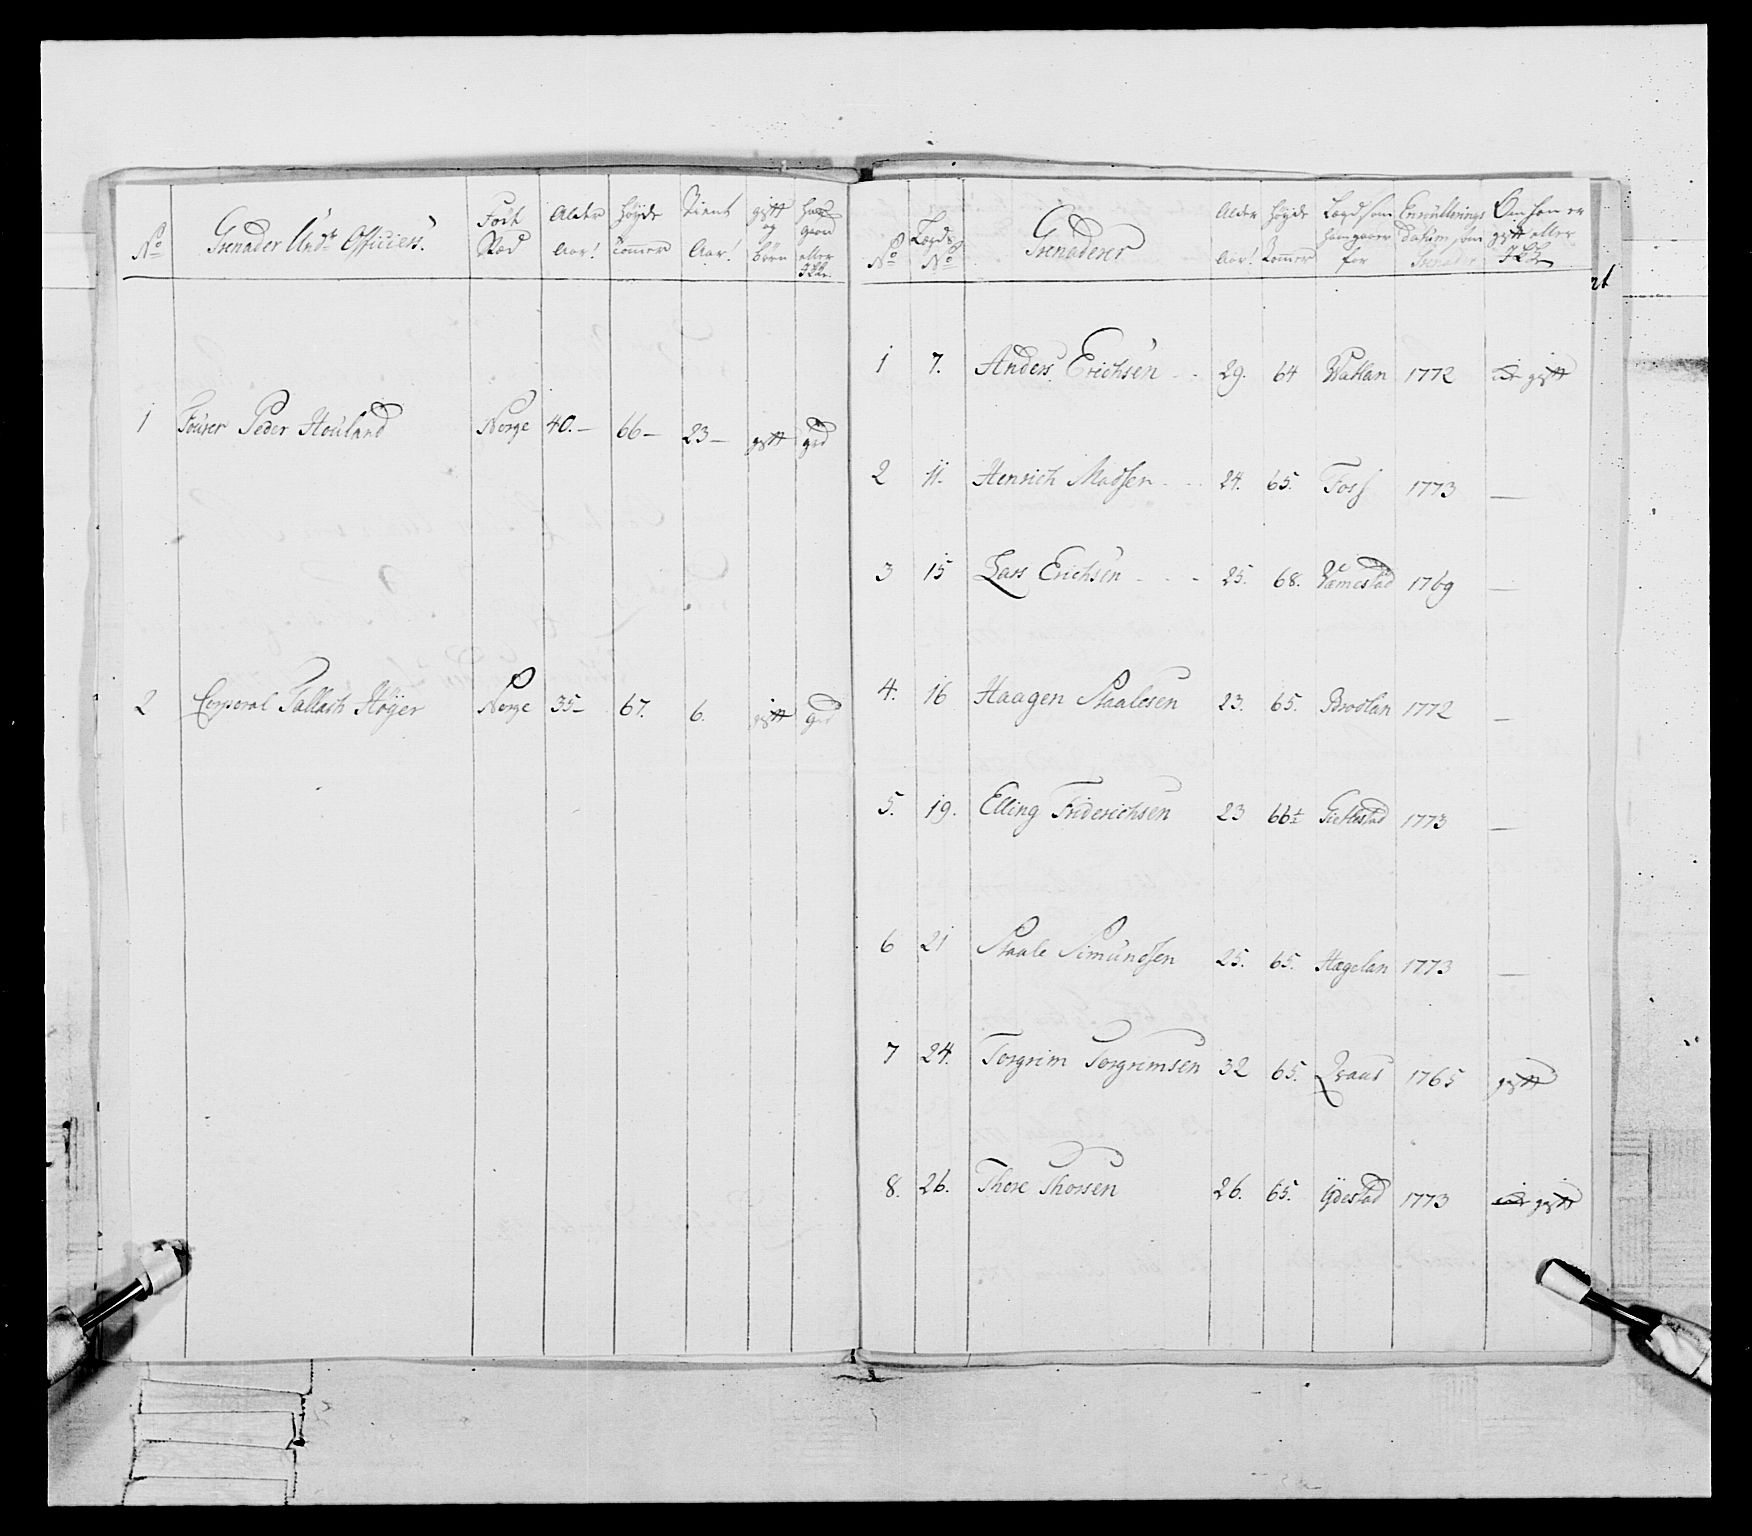 No Grenader Undr Officiers. Föde Stæd Alder Aar! Höyde Tommer Tient Aar! gift og börn
1 Fourer Peder Houland Norge 40.— 66— 23— gift grd
2 Corporal Tallach Höyer Norge 35— 67. 6. gift grd
No Lægds No Grenaderer Alder Aar! Höyde Tommer Lægd som hand gaaer for Enroullerings datum som Grenader Om han er gift eller Ikke
21
1 7. Anders Erichsen 29. 64 Watlan 1772 gift
2 11. Henrich Madsen 24. 65. Foss 1773 —
3 15 Lars Erichsen 25. 68. 1769 —
4. 16 Haagen Staalesen 23. 65. Brodlan 1772 —
5. 19. Elling Friderichsen 23 66½ Gietlestad 1773 —
6 21 Staale Simundsen 25. 65. Hægelan 1773 —
7 24. Torgrim Torgrimsen 32 65. 1765 gift
8. 26. Thore Thorsen 26. 65. Ydestad 1773 gift